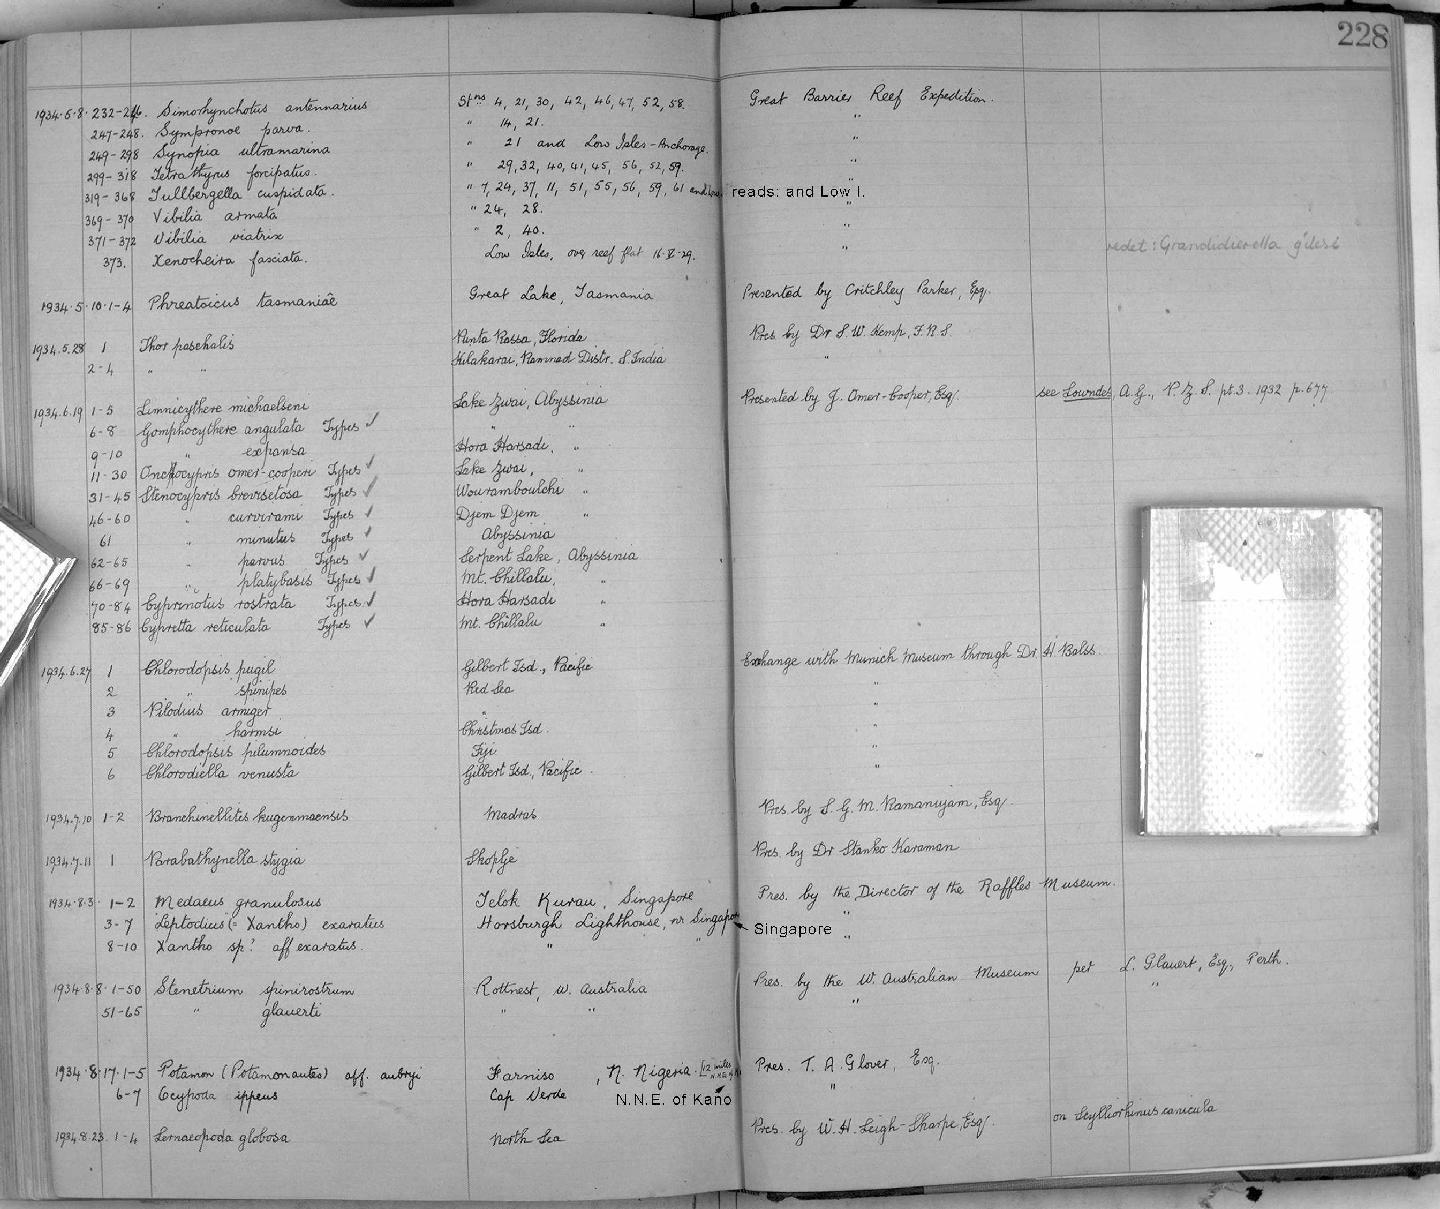 228
1934.5.8. 232-246. Simorhynchotus antennarius Stns 4, 21, 30, 42, 46, 47, 52, 58. Great Barrier Reef Expedition.
247-248. Sympronoe parva. " 14, 21. "
249-298 Synopia ultramarina " 21 and Low Isles - Anchorage. "
299-318 Tetrathyrus forcipatus. " 29, 32, 40, 41, 45, 56, 52, 59. "
319-368 Tullbergella cuspidata. " 7, 24, 37, 11, 51, 55, 56, 59, 61 and Low reads: and Low I.
369-370 Vibilia armata " 24, 28. "
371-372 Vibilia viatrix " 2, 40. "
373. Xenocheira fasciata. Low Isles, over reef flat 16-V-29. " redet: Grandidierella gilesi
1934.5.10.1-4 Phreatoicus tasmaniae Great Lake, Tasmania Presented by Critchley Parker, Esq.
1934.5.28 1 Thor paschalis Punta Rassa, Florida Pres. by Dr S. W. Kemp, F.R.S.
2-4 " " Kilakarai, Ramnad Distr. S. India "
1934.6.19 1-5 Limnicythere michaelseni Lake Zwai, Abyssinia Presented by J. Omer-Cooper, Esq. see Lowndes, A.G., P.Z.S. pt.3. 1932 p.677
6-8 Gomphocythere angulata Types ✓ " "
9-10 " expansa Hora Harsadi, "
11-30 Oncocypris omer-cooperi Types ✓ Lake Zwai, "
31-45 Stenocypris brevisetosa Types ✓ Wouramboulchi "
46-60 " curvirami Types ✓ Djem Djem "
61 " minutus Types ✓ Abyssinia
62-65 " parvus Types ✓ Serpent Lake, Abyssinia
66-69 " platybasis Types ✓ Mt. Chillalu, "
70-84 Cyprinotus rostrata Types ✓ Hora Harsadi "
85-86 Cypretta reticulata Types ✓ Mt. Chillalu "
1934.6.27 1 Chlorodopsis pugil Gilbert Isd., Pacific Exchange with Munich Museum through Dr H Balss.
2 " spinipes Red Sea "
3 Pilodius armiger " "
4 " harmsi Christmas Isd. "
5 Chlorodopsis pilumnoides Fiji "
6 Chlorodiella venusta Gilbert Isd, Pacific. "
1934.7.10 1-2 Branchinellites kugenumaensis Madras Pres. by S. G. M. Ramanujam, Esq.
1934.7.11 1 Parabathynella stygia Skoplje Pres. by Dr Stanko Karaman
1934.8.3. 1-2 Medaeus granulosus Telok Kurau, Singapore Pres. by the Director of the Raffles Museum.
3-7 Leptodius (= Xantho) exaratus Horsburgh Lighthouse, nr Singapore Singapore "
8-10 Xantho sp? aff exaratus. " " "
1934.8.8. 1-50 Stenetrium spinirostrum Rottnest, W. Australia Pres. by the W. Australian Museum per L. Glauert, Esq, Perth.
51-65 " glauerti " " " "
1934.8.17.1-5 Potamon (Potamonautes) aff. aubryi Farniso, N. Nigeria. [12 miles Pres. T. A. Glover, Esq.
6-7 Ocypoda ippeus Cap Verde N.N.E. of Kano "
1934.8.23. 1-4 Lernaeopoda globosa North Sea Pres. by W. H. Leigh-Sharpe, Esq. on Scylliorhinus canicula